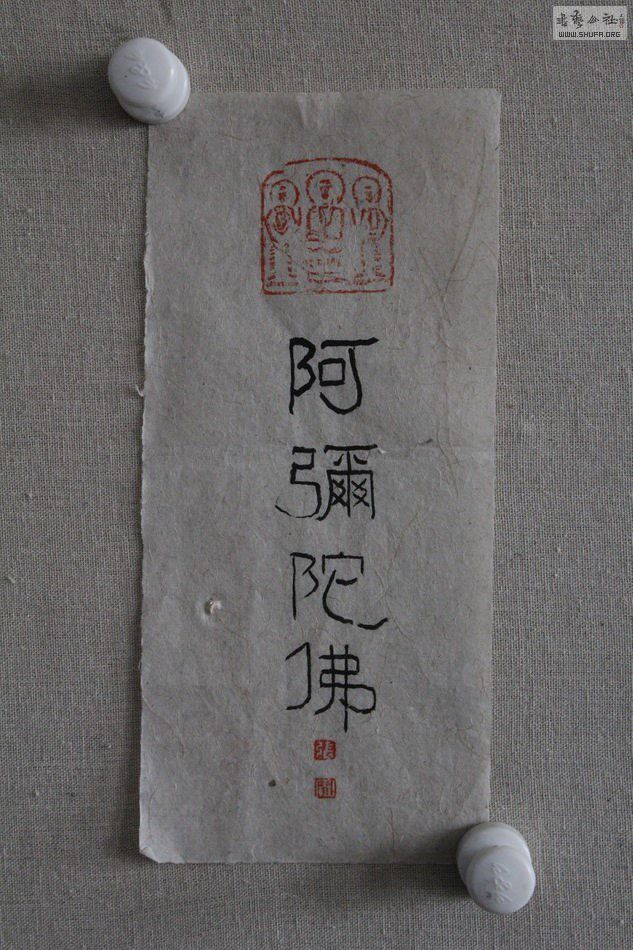 書藝公社
WWW.SHUFA.ORG
阿彌陀佛
張